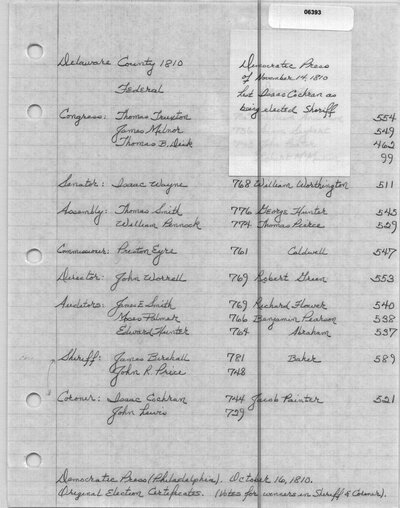 06393
Delaware County 1810
Federal
Democratic Press
of November 14, 1810
list Isaac Cochran as
being elected Sheriff
Congress: Thomas Truxton 554
James Milnor 549
Thomas B. Dick 462
99
Senator: Isaac Wayne 768 William Worthington 511
Assembly: Thomas Smith 776 George Hunter 545
William Pennock 774 Thomas Pearce 529
Commissioner: Preston Eyre 761 Caldwell 547
Director: John Worrall 769 Robert Green 553
Auditors: James E. Smith 769 Richard Flower 540
Moses Palmer 766 Benjamin Pearson 538
Edward Hunter 764 Abraham 537
Sheriff: James Birchall 781 Baker 589
John R. Price 748
Coroner: Isaac Cochran 744 Jacob Painter 521
John Lewis 729
Democratic Press (Philadelphia). October 16, 1810.
Original Election Certificates. (Votes for winners in Sheriff & Coroner).